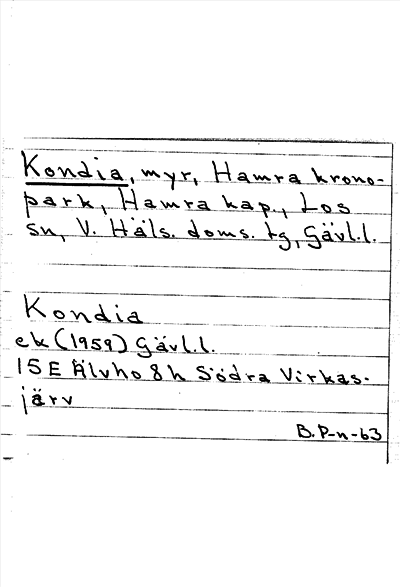 Kondia, myr, Hamra krono-
park, Hamra kap., Los
sn, V. Häls. doms. tg, Gävl.l.
Kondia
ek (1959) Gävl.l.
15E Älvho 8h Södra Virkas-
järv
B.P-n-63